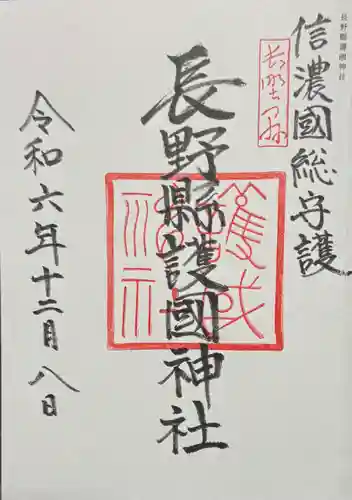 長野縣護國神社
信濃國総守護
長野縣
長野縣護國神社
護国神社
令和六年十二月八日